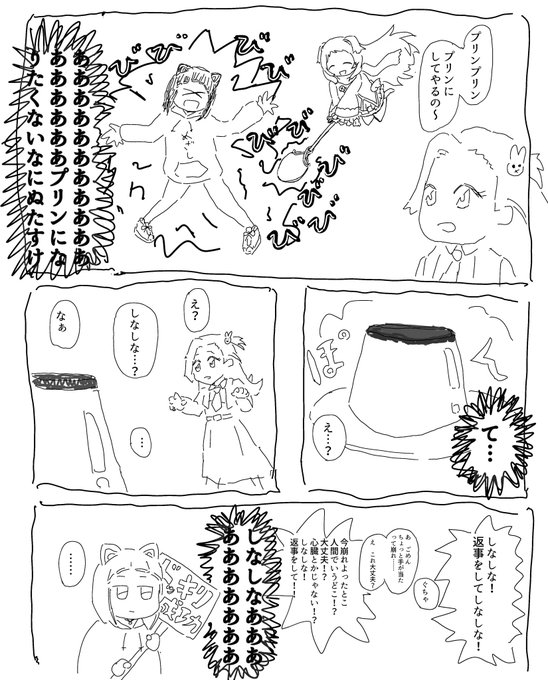 プリンプリン
プリンに
してやるの〜
びびびび
びびびび
ああああああああああああ
ああああああプリンにな
りたくないなにぬたすけ
て…
ぽ
く
え…?
え?
しなしな…?
なぁ
…
しなしな!
返事をしてしなしな!
ぐちゃ
あ、ごめん
ちょっと手が当た
って崩れ……
え、これ大丈夫?
今崩れよったとこ
人間でいうどこ!?
大丈夫!?
心臓とかじゃない!?
しなしな!
返事をして!!
しなしなあああ
ああああああああ
……
ドッキリ